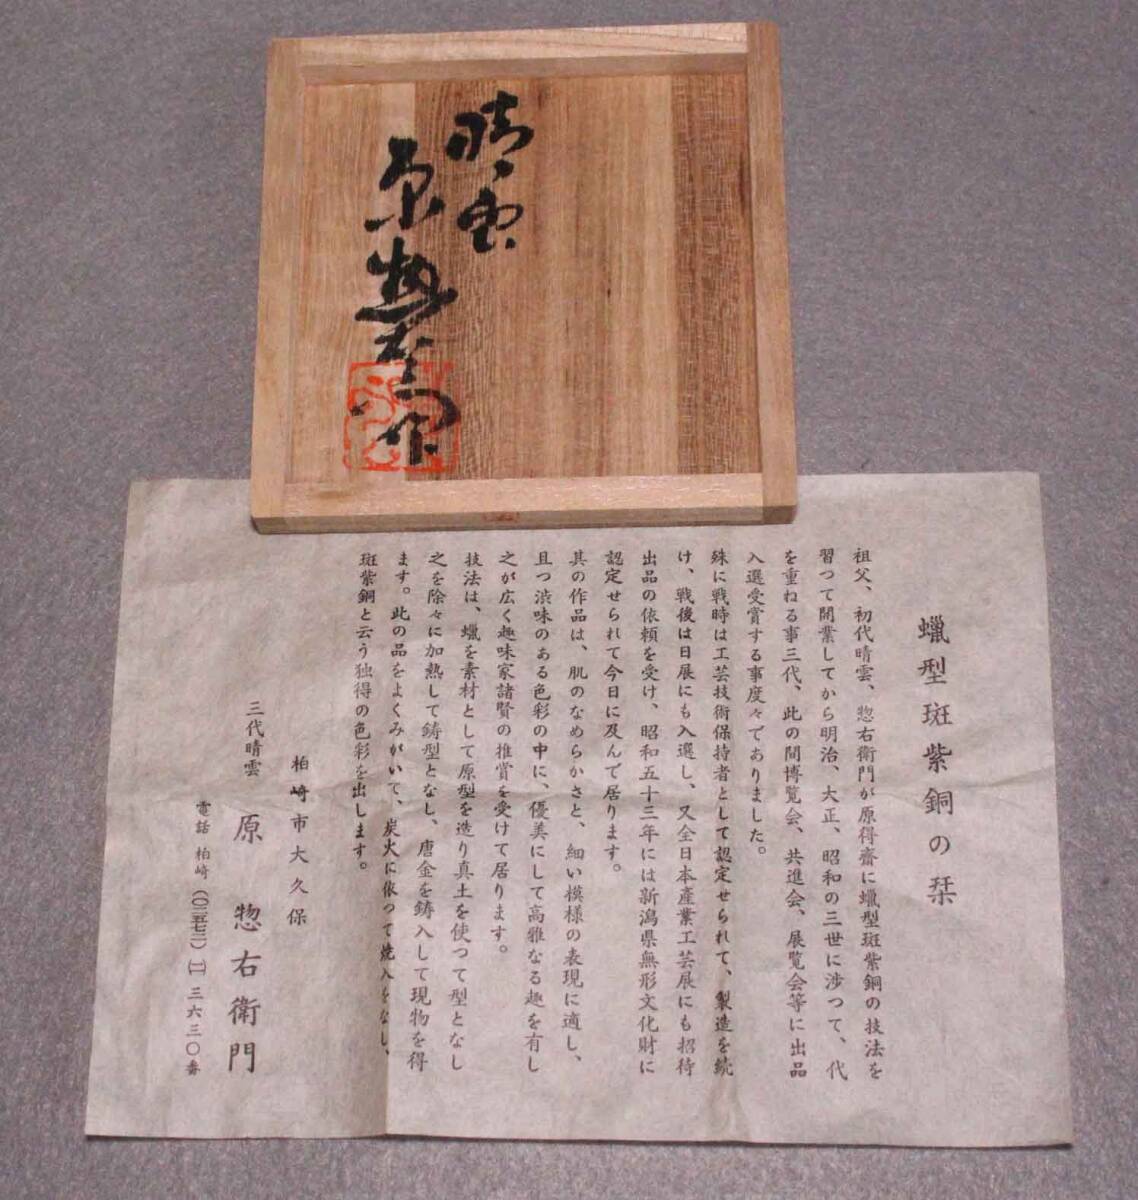 晴雲
原惣右衛門作
蠟型斑紫銅の栞
祖父、初代晴雲、惣右衛門が原得齋に蠟型斑紫銅の技法を
習つて開業してから明治、大正、昭和の三世に渉つて、代
を重ねる事三代、此の間博覧会、共進会、展覧会等に出品
入選受賞する事度々でありました。
殊に戦時は工芸技術保持者として認定せられて、製造を続
け、戦後は日展にも入選し、又全日本産業工芸展にも招待
出品の依頼を受け、昭和五十三年には新潟県無形文化財に
認定せられて今日に及んで居ります。
其の作品は、肌のなめらかさと、細い模様の表現に適し、
且つ渋味のある色彩の中に、優美にして高雅なる趣を有し
之が広く趣味家諸賢の推賞を受けて居ります。
技法は、蠟を素材として原型を造り真土を使つて型となし
之を除々に加熱して鋳型となし、唐金を鋳入して現物を得
ます。此の品をよくみがいて、炭火に依って焼入をなし、
斑紫銅と云う独得の色彩を出します。
柏崎市大久保
三代晴雲 原惣右衛門
電話 柏崎(〇二五七二)(二)三六三〇番